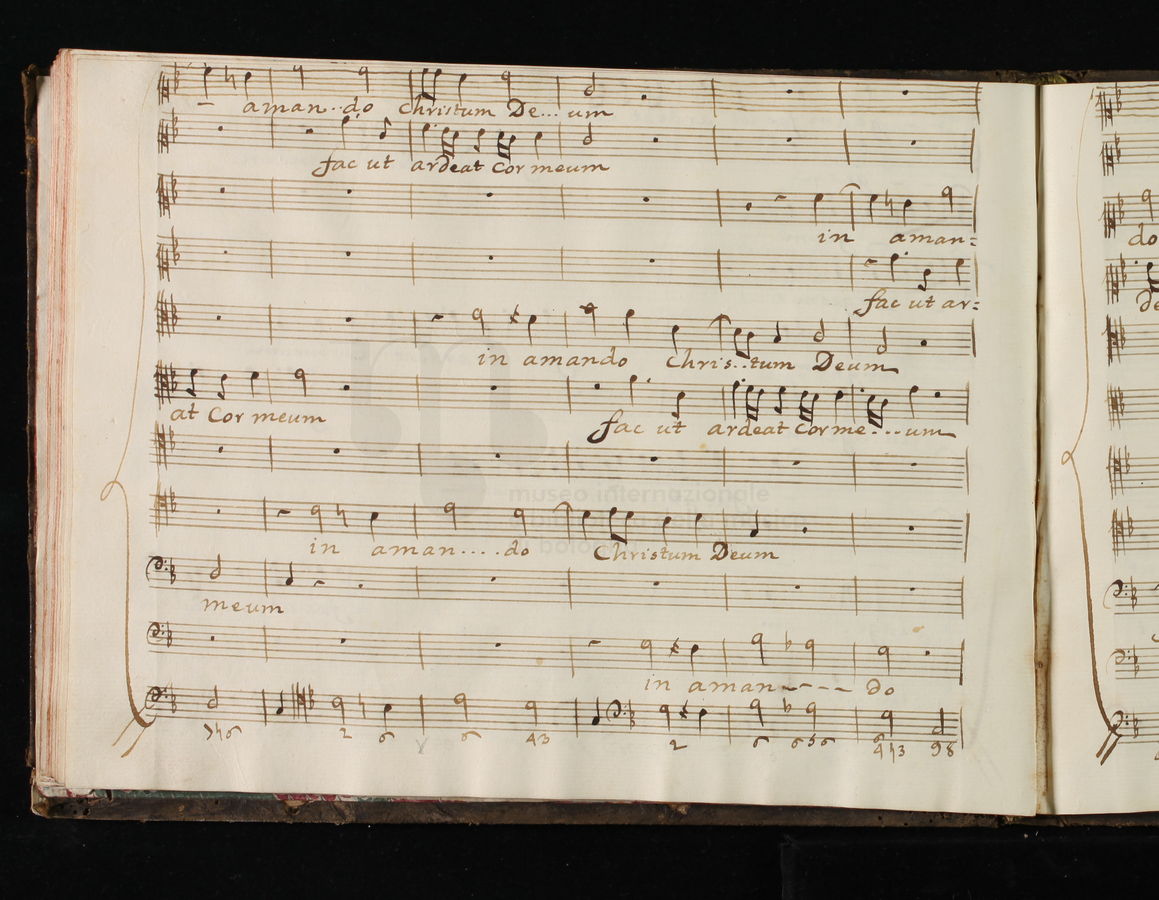 aman..do Christum De... um
fac ut ardeat Cor meum
in aman=
fac ut ar=
in amando Chris..tum Deum
at Cor meum fac ut ardeat Cor me...um
museo internazionale
in aman....do Christum Deum
meum
in aman---- do
2 6 6 43 2 6 6 56 4 3 98
do